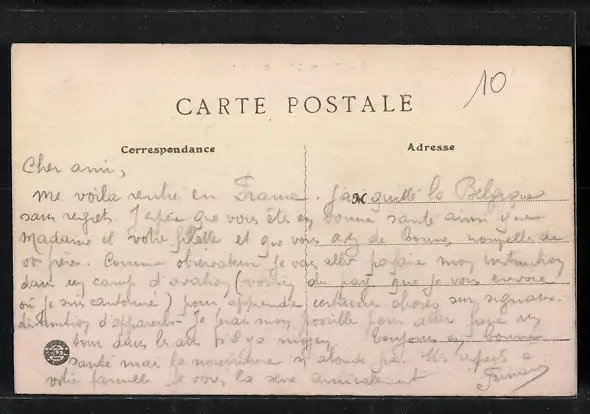 10
CARTE POSTALE
Correspondance Adresse
Cher ami,
me voila rentré en France. J'ai quitté la Belgique
sans regrets. J'espère que vous êtes en bonne santé ainsi que
Madame et votre fillette et que vous avez de bonnes nouvelles de
vos frères. Comme observateur je vais aller parfaire mon instruction
dans un camp d'aviation (voisin du pays que je vous envoie
où je suis cantonné) pour apprendre certaines choses sur signaux.
d'appareils. Je ferai mon possible pour aller faire un
tour dans les airs s'il y a moyen. Toujours en bonne
santé mais la nourriture n'abonde pas. Mes respects à
votre famille je vous la serre amicalement